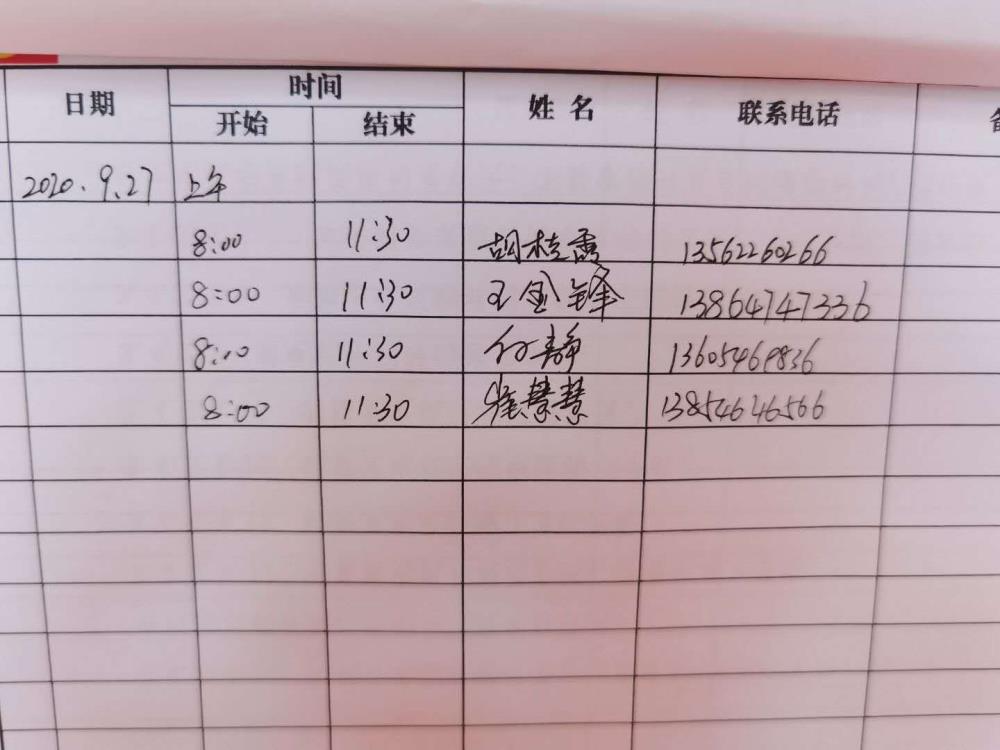 日期 时间 姓名 联系电话
开始 结束
2020.9.27 上午
8:00 11:30 胡桂秀 13562260266
8:00 11:30 王金锋 13864747336
8:00 11:30 付静 13605469836
8:00 11:30 慧慧 13854646566